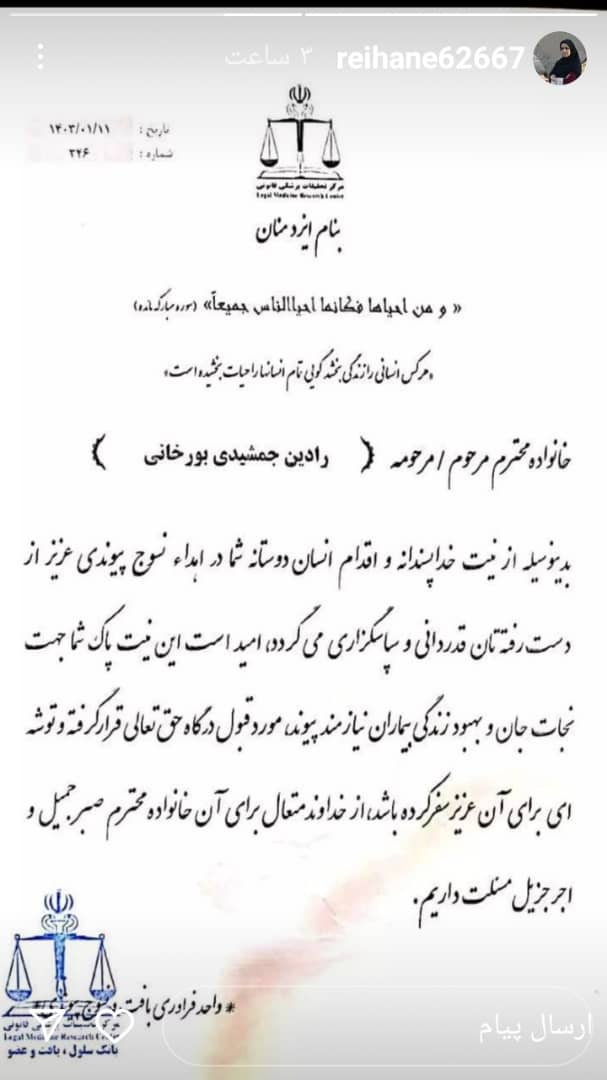 reihane62667 ۳ ساعت
تاریخ : ۱۴۰۳/۰۱/۱۱
شماره : ۲۴۶
مرکز تحقیقات پزشکی قانونی
Legal Medicine Research Center
بنام ایزد منان
« و من احیاها فکانما احیاالناس جمیعاً» (سوره مبارکه مائده)
«هرکس انسانی را زندگی بخشد گویی تمام انسانها را حیات بخشیده است»
خانواده محترم مرحوم / مرحومه ( رادین جمشیدی بورخانی )
بدینوسیله از نیت خداپسندانه و اقدام انسان دوستانه شما در اهداء نسوج پیوندی عزیز از
دست رفته تان قدردانی و سپاسگزاری می گردد، امید است این نیت پاک شما جهت
نجات جان و بهبود زندگی بیماران نیازمند پیوند، مورد قبول درگاه حق تعالی قرار گرفته و توشه
ای برای آن عزیز سفر کرده باشد، از خداوند متعال برای آن خانواده محترم صبر جمیل و
اجر جزیل مسئلت داریم.
* واحد فراوری بافت و نسوج پیوندی*
مرکز تحقیقات پزشکی قانونی
Legal Medicine Research Center
بانک سلول ، بافت و عضو
ارسال پیام